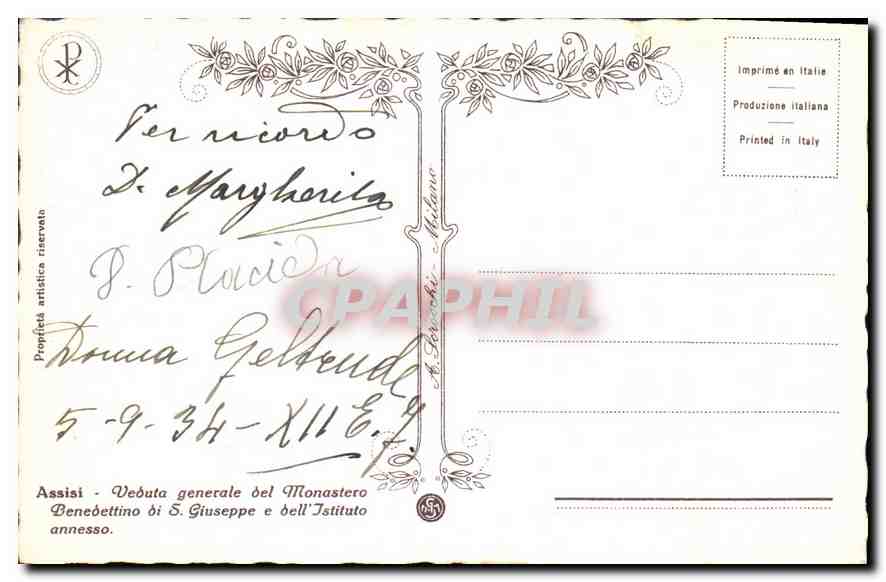 Per ricordo
D. Margherita
D. Placida
Donna Geltrude
5-9-34-XII E.F.
Assisi - Veduta generale del Monastero
Benedettino di S. Giuseppe e dell'Istituto
annesso.
Proprietà artistica riservata
Milano
Imprimé en Italie
Produzione italiana
Printed in Italy
CPAPHIL